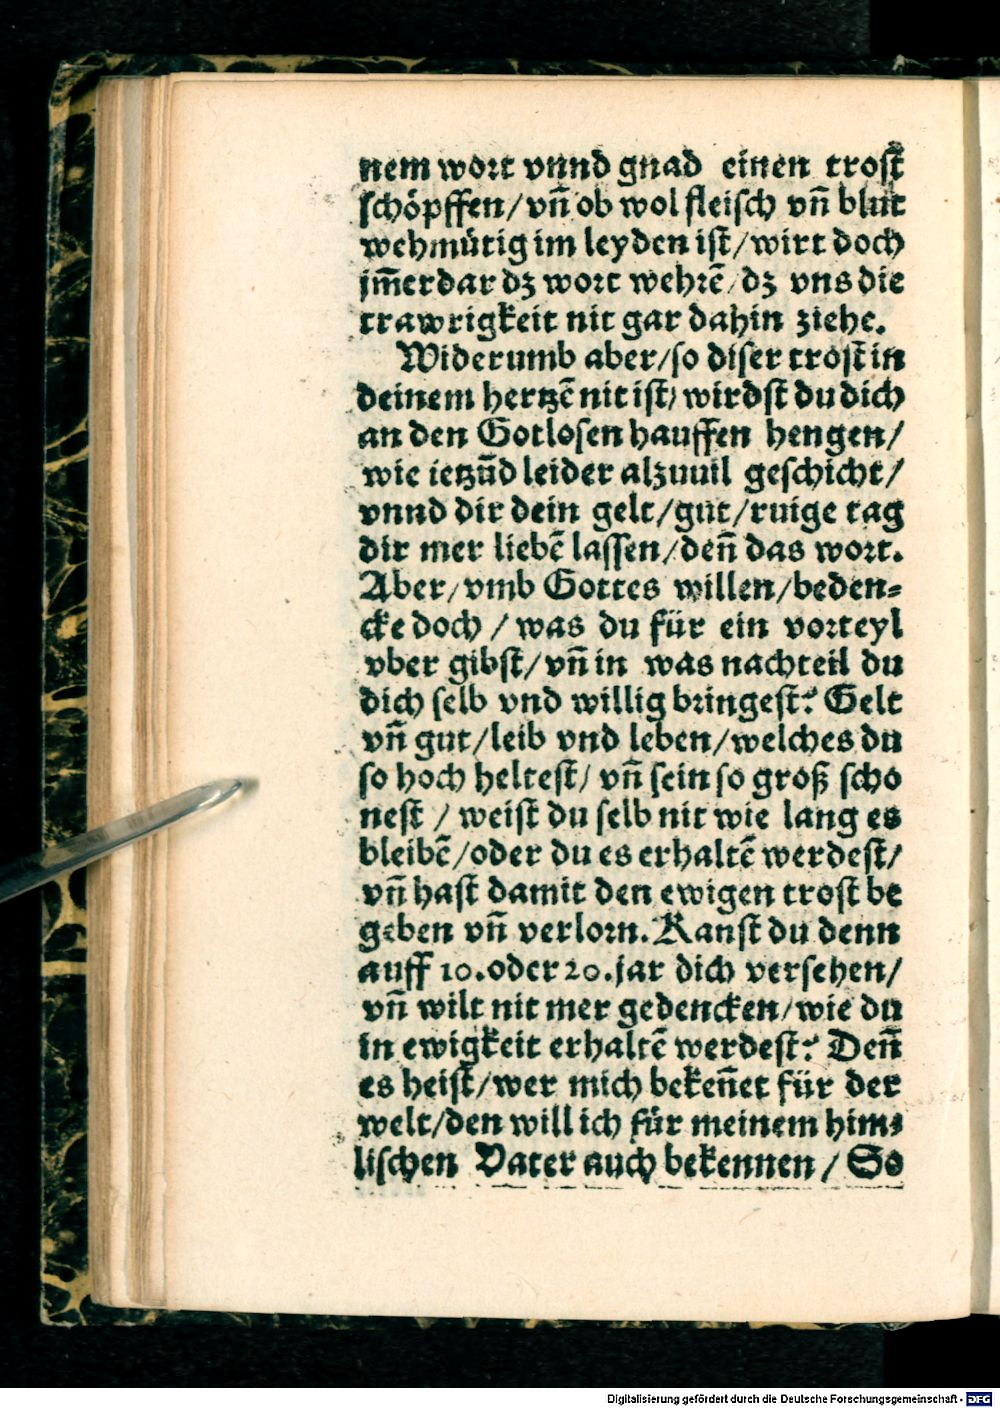 nem wort vnnd gnad einen trost
schöpffen/vn̄ ob wol fleisch vn̄ blut
wehmütig im leyden ist/wirt doch
jm̄erdar dz wort wehrē/dz vns die
trawrigkeit nit gar dahin ziehe.
Widerumb aber/so diser trost in
deinem hertzē nit ist/wirdst du dich
an den Gotlosen hauffen hengen/
wie ietzūd leider alzuuil geschicht/
vnnd dir dein gelt/gut/ruige tag
dir mer liebē lassen/den̄ das wort.
Aber/vmb Gottes willen/beden⸗
cke doch/was du für ein vorteyl
vber gibst/vn̄ in was nachteil du
dich selb vnd willig bringest? Gelt
vn̄ gut/leib vnd leben/welches du
so hoch heltest/vn̄ sein so groß scho
nest/weist du selb nit wie lang es
bleibē/oder du es erhaltē werdest/
vn̄ hast damit den ewigen trost be
geben vn̄ verlorn. Kanst du denn
auff 10. oder 20. jar dich versehen/
vn̄ wilt nit mer gedencken/wie du
in ewigkeit erhaltē werdest? Den̄
es heist/wer mich beken̄et für der
welt/den will ich für meinem him⸗
lischen Vater auch bekennen/So
Digitalisierung gefördert durch die Deutsche Forschungsgemeinschaft - DFG